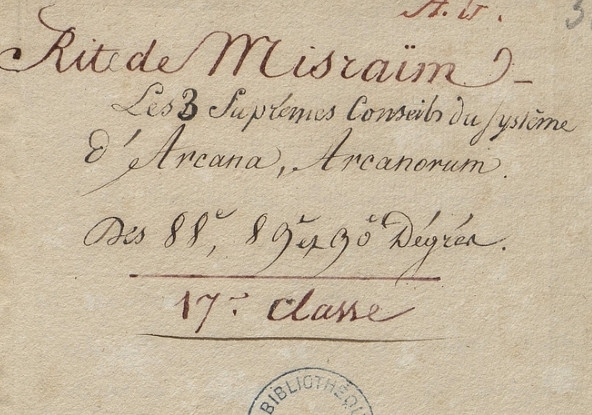 A. J.
3
Rite de Misraïm
Les 3 Suprêmes Conseils du système
d'Arcana, Arcanorum.
Des 88e, 89e et 90e Dégrés.
17e classe
BIBLIOTHÈQU